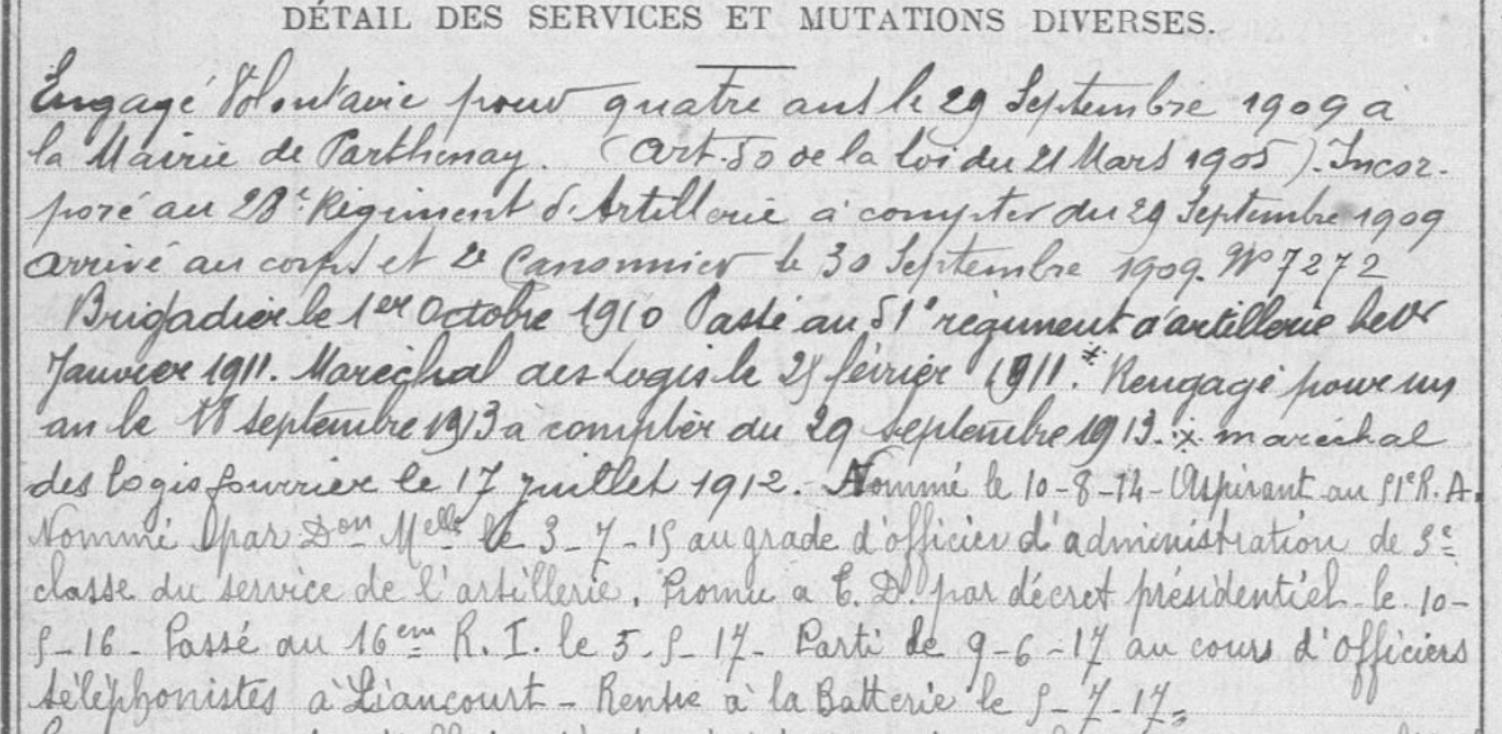 DÉTAIL DES SERVICES ET MUTATIONS DIVERSES.
Engagé Volontaire pour quatre ans le 29 Septembre 1909 à
la Mairie de Parthenay. (Art. 50 de la loi du 21 Mars 1905). Incor-
poré au 28e Régiment d'Artillerie à compter du 29 Septembre 1909
arrivé au corps et 2e Canonnier le 30 Septembre 1909. No 7272
Brigadier le 1er Octobre 1910 Passé au 51e régiment d'artillerie le 1er
Janvier 1911. Maréchal des Logis le 25 février 1911.* Rengagé pour un
an le 18 septembre 1913 à compter du 29 septembre 1913. x maréchal
des logis fourrier le 17 juillet 1912. - Nommé le 10-8-14 - Aspirant au 51e R.A.
Nommé par Don Melle le 3-7-15 au grade d'officier d'administration de 3e
classe du service de l'artillerie. Promu a T. D. par décret présidentiel le 10-
5-16 - Passé au 16eme R. I. le 5-5-17 - Parti le 9-6-17 au cours d'officiers
téléphonistes à Liancourt - Rentre à la Batterie le 5-7-17 =